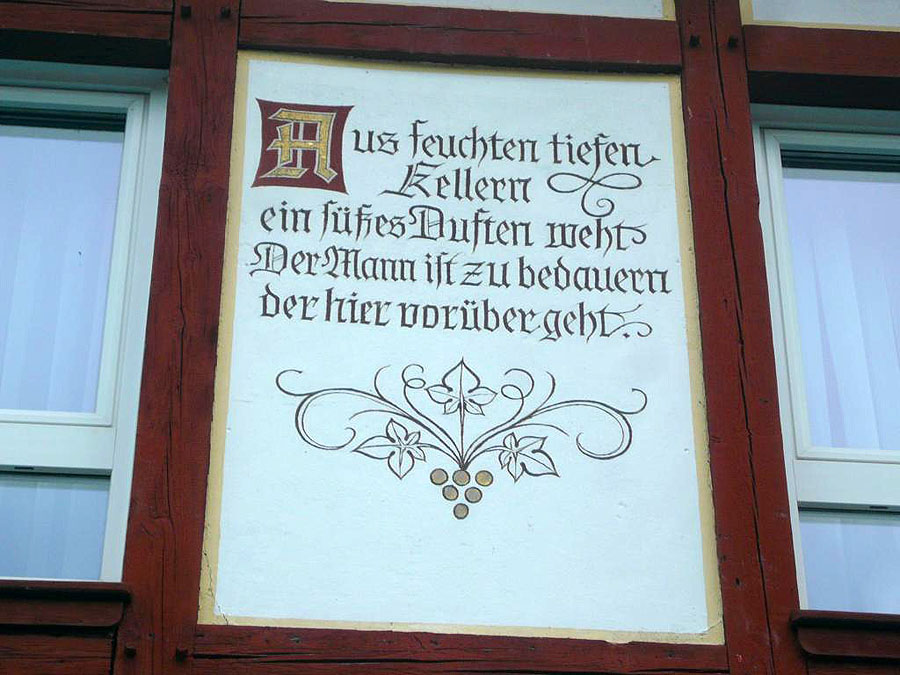 Aus feuchten tiefen
Kellern
ein süßes Duften weht
Der Mann ist zu bedauern
der hier vorüber geht.